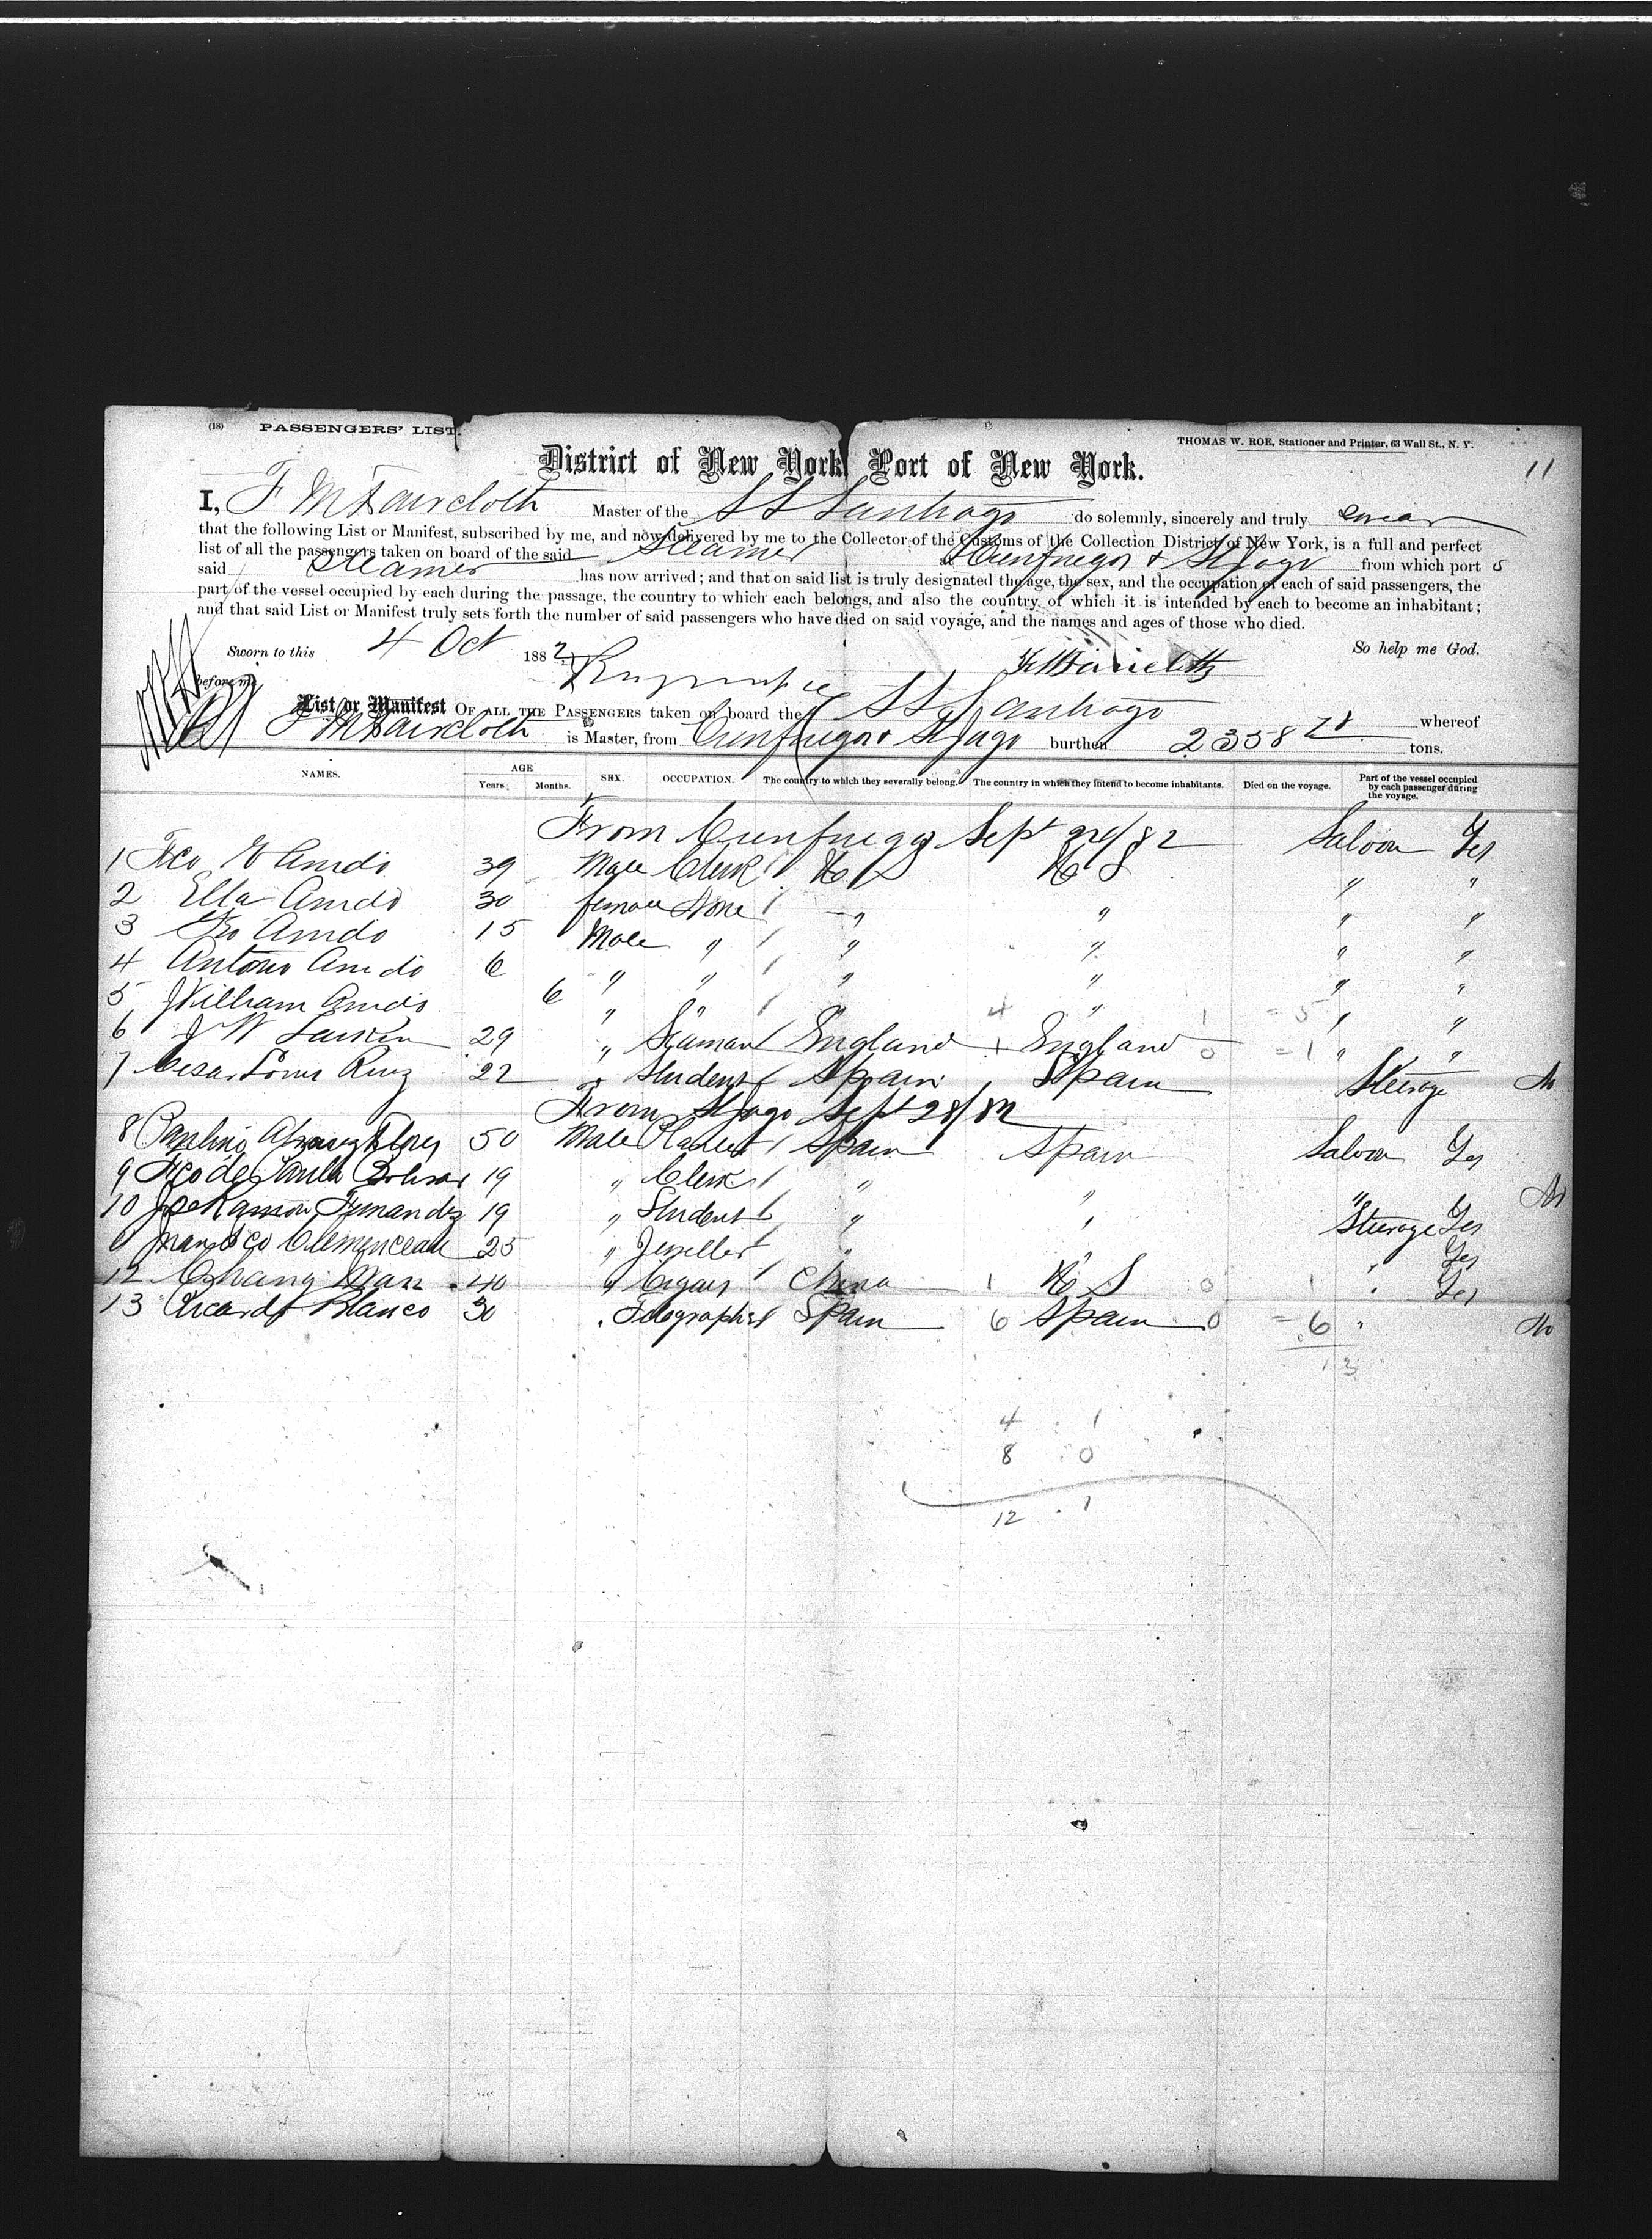 (18) PASSENGERS' LIST.
THOMAS W. ROE, Stationer and Printer, 63 Wall St., N. Y.
11
District of New York Port of New York.
I, F M Faircloth Master of the SS Santiago do solemnly, sincerely and truly swear
that the following List or Manifest, subscribed by me, and now delivered by me to the Collector of the Customs of the Collection District of New York, is a full and perfect
list of all the passengers taken on board of the said Steamer at Cienfuegos & St Jago from which port s
said Steamer has now arrived; and that on said list is truly designated the age, the sex, and the occupation of each of said passengers, the
part of the vessel occupied by each during the passage, the country to which each belongs, and also the country of which it is intended by each to become an inhabitant;
and that said List or Manifest truly sets forth the number of said passengers who have died on said voyage, and the names and ages of those who died.
Sworn to this 4 Oct 1882 So help me God.
before me F M Faircloth
List or Manifest OF ALL THE PASSENGERS taken on board the SS Santiago whereof
F M Faircloth is Master, from Cienfuegos & St Jago burthen 2358 tons.
NAMES. AGE Years. Months. SEX. OCCUPATION. The country to which they severally belong. The country in which they intend to become inhabitants. Died on the voyage. Part of the vessel occupied by each passenger during the voyage.
From Cienfuegos Sept 24/82
1 Fco Amido 39 Male Clerk U S U S Saloon Yes
2 Ella Amido 30 female None " " " "
3 Fco Amido 15 Male " " " " "
4 Antonio Amido 6 " " " " " "
5 William Amido 6 " " " 4 " 1 = 5 " "
6 J W Larkin 29 " Seaman England 1 England 0 = 1 " "
7 Cesar Ruiz 22 " Student Spain Spain Steerage No
From St Jago Sept 28/82
8 Paulino 50 Male Planter Spain Spain Saloon Yes
9 Fco de Paula 19 " Clerk " " " No
10 Jose Ramon Fernandez 19 " Student " " Steerage Yes
Francisco Clemenceau 25 " Jeweller " " " Yes
12 Chang Man 40 " Cigars China 1 U S 0 1 " Yes
13 Ricardo Blanco 30 " Telegraphist Spain 6 Spain 0 = 6 " No
13
4 1
8 0
12 1